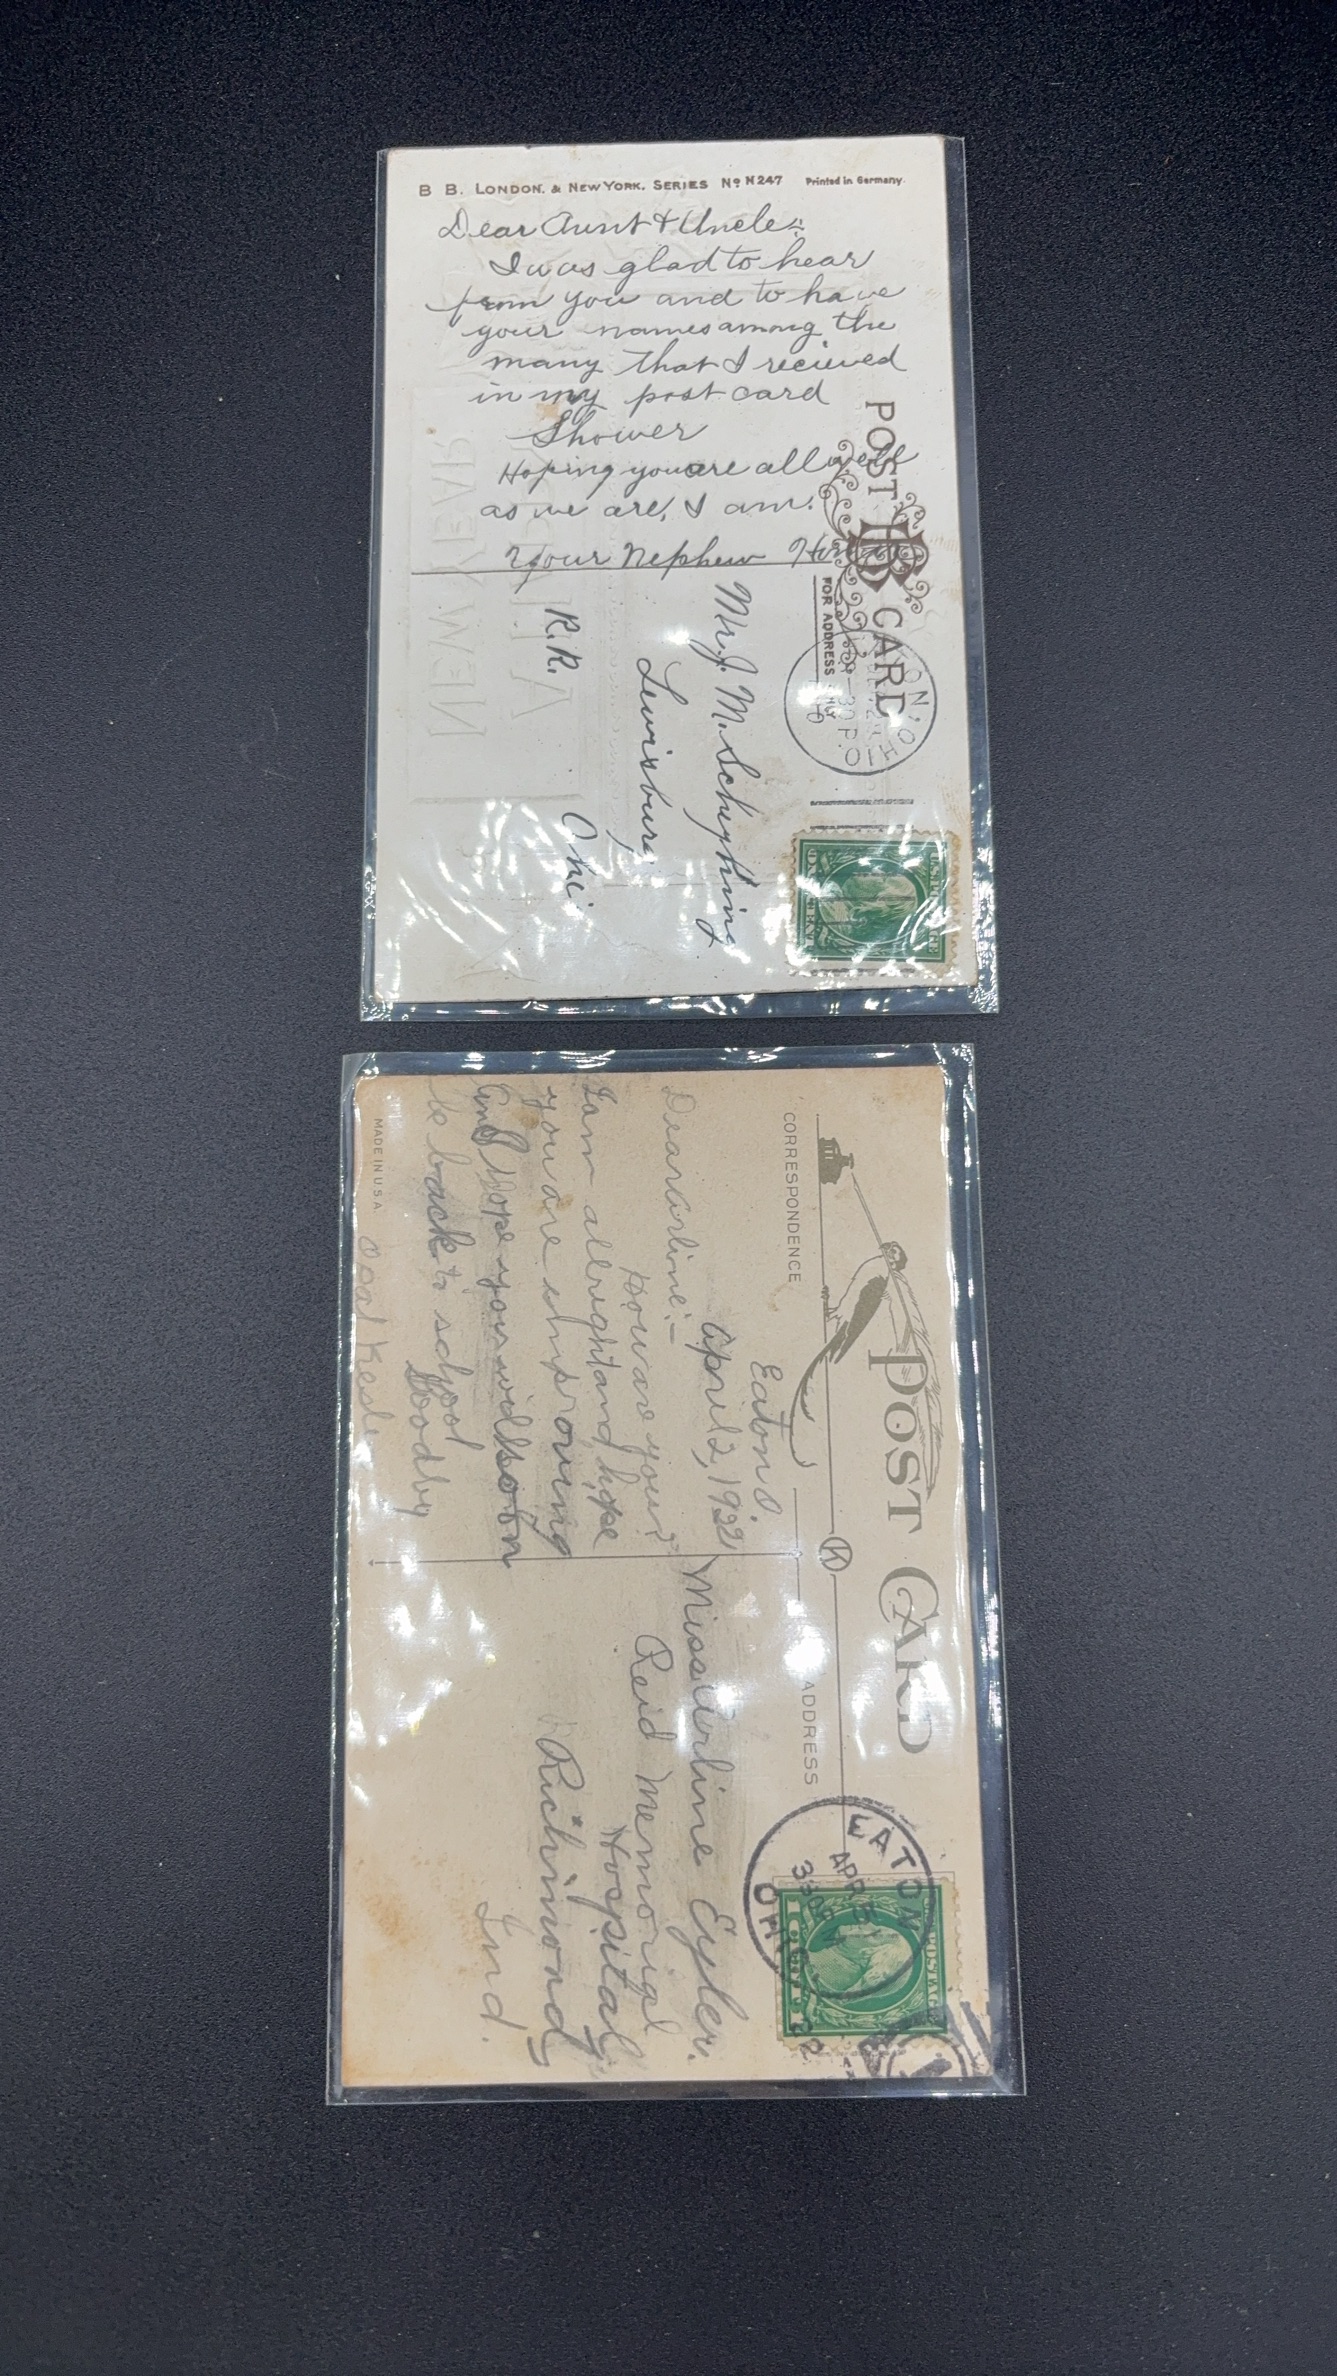 B B. LONDON. & NEW YORK. SERIES No N 247 Printed in Germany.
Dear Aunt & Uncle:
I was glad to hear
from you and to have
your names among the
many that I recieved
in my post card
Shower
Hoping you are all well
as we are, I am.
Your Nephew
POST CARD
BB
FOR ADDRESS ONLY
Mr. J. M.
Lewisburg
R.R.
NEW YEAR
U.S. POSTAGE
ONE CENT
POST CARD
CORRESPONDENCE
K
ADDRESS
Eaton O.
April 2, 1922
Dear arline:-
How are you?
I am allright and hope
you are improving
and Hope you will soon
be back to school
Goodby
Opal
MADE IN U.S.A.
Miss arline Eyler.
Reid Memorial
Hospital,
Richmond,
Ind.
EATON
APR
330P M
OHIO
U.S. POSTAGE